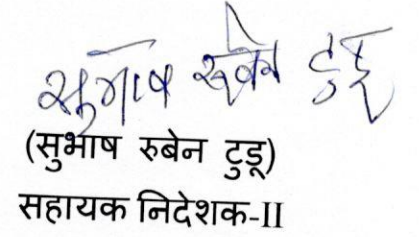 सुभाष रुबेन टुडू
(सुभाष रुबेन टुडू)
सहायक निदेशक-II